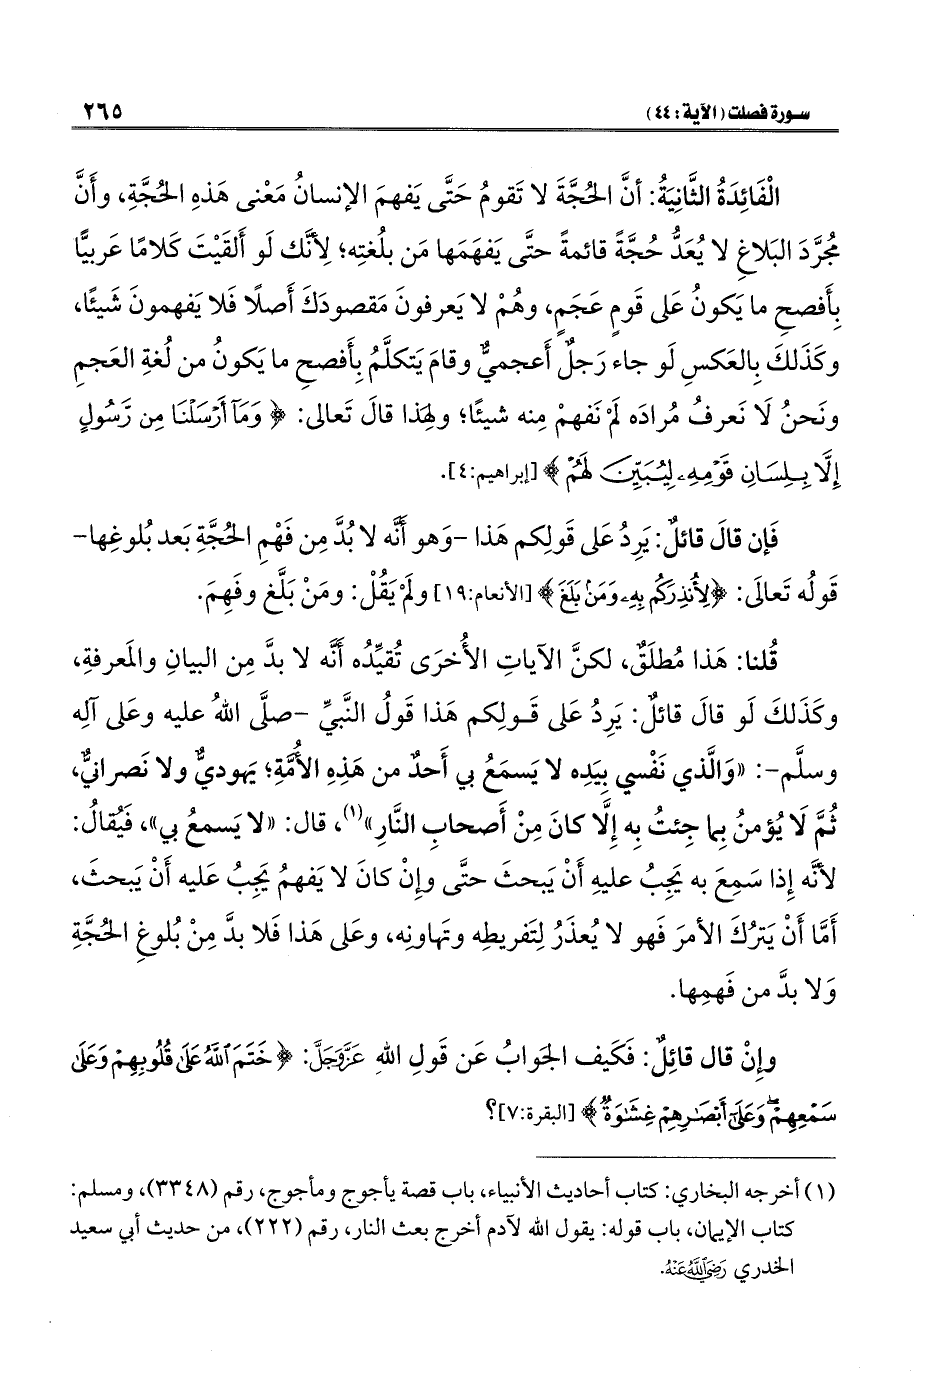 سورة فصلت (الآية: ٤٤) ٢٦٥
الْفَائِدَةُ الثَّانِيَةُ: أنَّ الحُجَّةَ لا تَقومُ حَتَّى يَفهمَ الإنسانُ مَعْنى هَذِهِ الحُجَّةِ، وأَنَّ
مُجرَّدَ البَلاغِ لا يُعَدُّ حُجَّةً قائمةً حتَّى يَفهَمَها مَن بلُغتِه؛ لِأنَّك لو أَلقَيْتَ كَلامًا عَربيًّا
بِأَفصحِ ما يَكونُ عَلى قومٍ عَجَمٍ، وهُمْ لا يَعرفونَ مَقصودَكَ أَصلًا فَلا يَفهمونَ شَيئًا،
وكَذَلكَ بِالعَكسِ لَو جاء رَجلٌ أَعجميٌّ وقامَ يَتكلَّمُ بِأَفصحِ ما يَكونُ من لُغةِ العَجمِ
ونَحنُ لَا نَعرفُ مُرادَه لَمْ نَفهمْ مِنه شيئًا؛ ولِهَذا قالَ تَعالى: ﴿ وَمَآ أَرْسَلْنَا مِن رَّسُولٍ
إِلَّا بِلِسَانِ قَوْمِهِۦ لِيُبَيِّنَ لَهُمْ ﴾ [إبراهيم:٤].
فَإن قالَ قائلٌ: يَرِدُ عَلى قَولِكم هَذا -وَهو أَنَّه لا بُدَّ مِن فَهْمِ الحُجَّةِ بَعد بُلوغِها-
قَولُه تَعالَى: ﴿لِأُنذِرَكُم بِهِۦ وَمَنۢ بَلَغَ ﴾ [الأنعام:١٩] ولَمْ يَقُلْ: ومَنْ بَلَّغ وفَهِمَ.
قُلنا: هَذا مُطلَقٌ، لكنَّ الآياتِ الأُخرَى تُقيِّدُه أنَّه لا بدَّ مِن البيانِ والمَعرفةِ،
وكَذَلكَ لَو قالَ قائلٌ: يَرِدُ عَلى قَولِكم هَذا قَولُ النَّبيِّ -صلَّى اللهُ عليه وعَلى آلِه
وسلَّم-: «وَالَّذي نَفْسي بِيَدِه لا يَسمَعُ بي أَحدٌ من هَذِه الأُمَّةِ؛ يَهوديٌّ ولا نَصرانيٌّ،
ثُمَّ لَا يُؤمنُ بِما جِئتُ به إلَّا كانَ مِنْ أَصحابِ النَّارِ»(١)، قال: «لا يَسمعُ بي»، فَيُقالُ:
لأنَّه إِذا سَمِعَ به يَجبُ عليهِ أَنْ يَبحثَ حتَّى وإنْ كانَ لا يَفهمُ يَجبُ عَليه أَنْ يَبحثَ،
أمَّا أَنْ يَترُكَ الأمرَ فَهو لا يُعذَرُ لِتَفريطِه وتَهاونِه، وعَلى هَذا فَلا بدَّ مِنْ بُلوغِ الحُجَّةِ
وَلا بدَّ من فَهمِها.
وإنْ قال قائِلٌ: فَكَيف الجوابُ عَن قَولِ اللهِ عَزَّوَجَلَّ: ﴿ خَتَمَ ٱللَّهُ عَلَىٰ قُلُوبِهِمْ وَعَلَىٰ
سَمْعِهِمْ ۖ وَعَلَىٰٓ أَبْصَٰرِهِمْ غِشَٰوَةٌ ﴾ [البقرة:٧]؟
(١) أخرجه البخاري: كتاب أحاديث الأنبياء، باب قصة يأجوج ومأجوج، رقم (٣٣٤٨)، ومسلم:
كتاب الإيمان، باب قوله: يقول الله لآدم أخرج بعث النار، رقم (٢٢٢)، من حديث أبي سعيد
الخدري رَضِيَ اللَّهُ عَنْهُ.